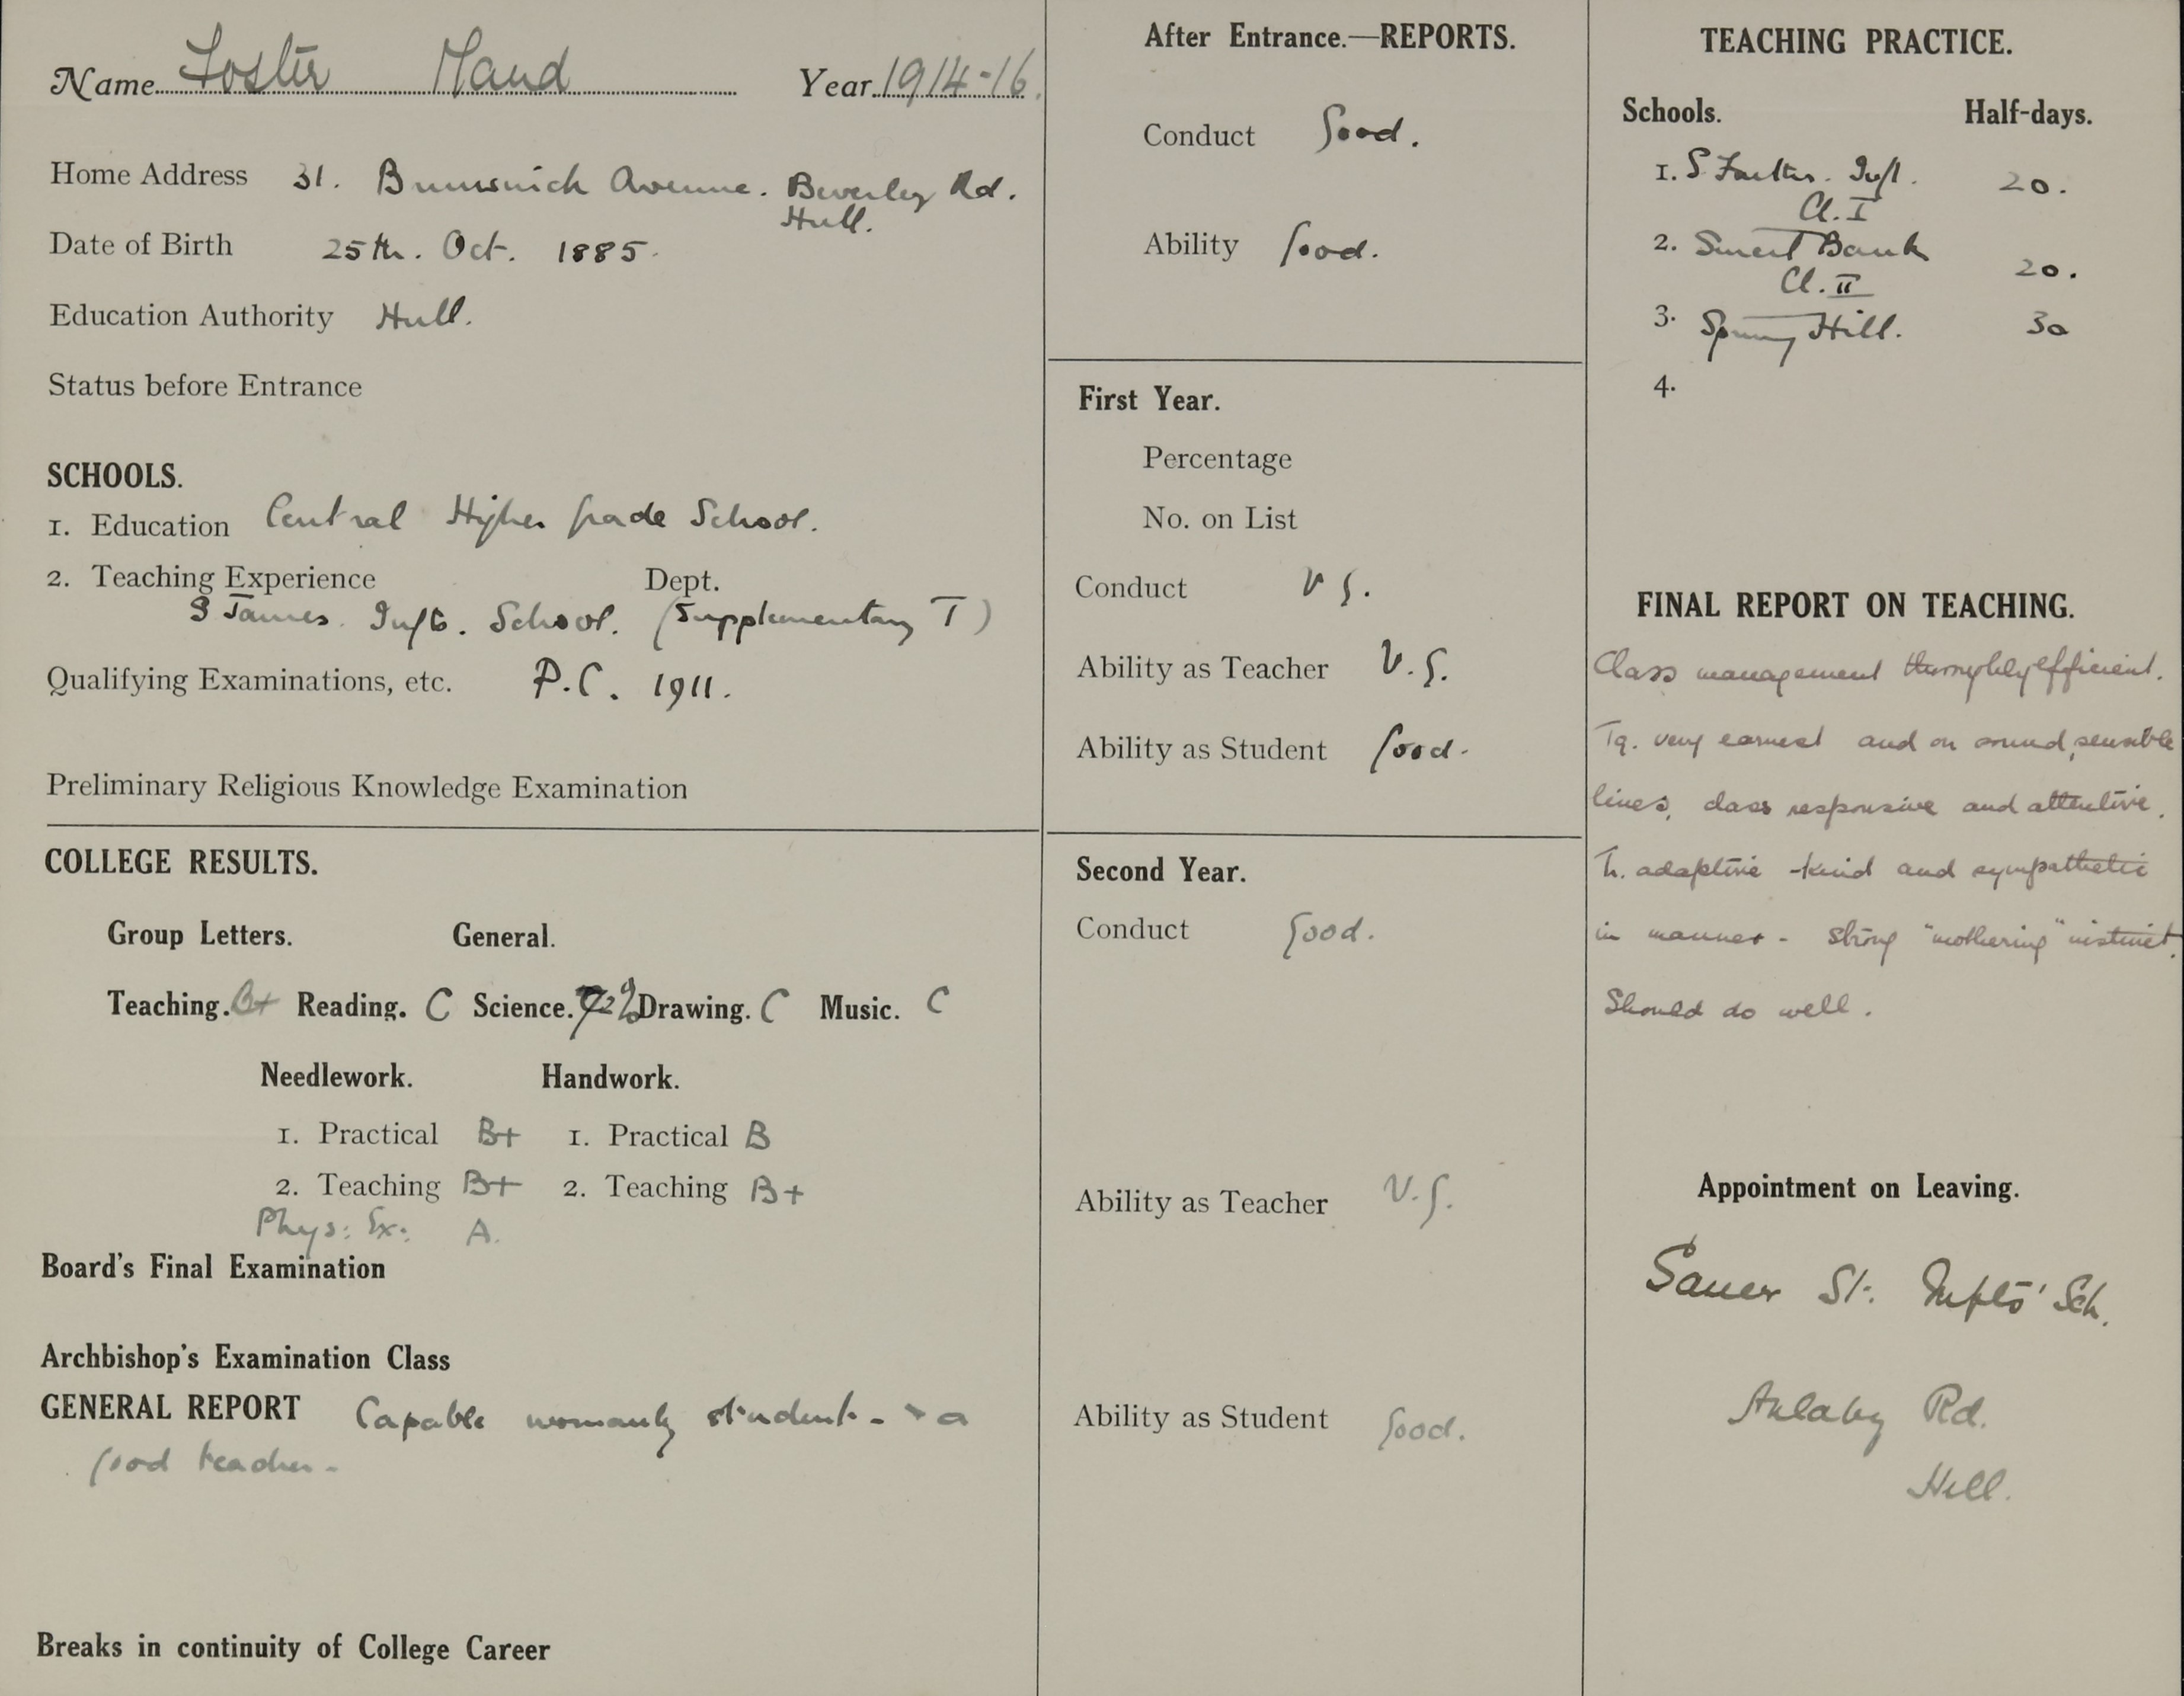 Name Foster Maud Year 1914-16.
Home Address 31. Brunswick Avenue. Beverley Rd.
Hull.
Date of Birth 25th. Oct. 1885.
Education Authority Hull.
Status before Entrance
SCHOOLS.
1. Education Central Higher Grade School.
2. Teaching Experience Dept.
S James. Infts. School. (Supplementary T)
Qualifying Examinations, etc. P.C. 1911.
Preliminary Religious Knowledge Examination
COLLEGE RESULTS.
Group Letters. General.
Teaching. B+ Reading. C Science. 72% Drawing. C Music. C
Needlework. Handwork.
1. Practical B+ 1. Practical B
2. Teaching B+ 2. Teaching B+
Phys: Ex: A.
Board's Final Examination
Archbishop's Examination Class
GENERAL REPORT Capable womanly student - + a
good teacher -
Breaks in continuity of College Career
After Entrance.—REPORTS.
Conduct Good.
Ability Good.
First Year.
Percentage
No. on List
Conduct V G.
Ability as Teacher V.G.
Ability as Student Good.
Second Year.
Conduct Good.
Ability as Teacher V.G.
Ability as Student Good.
TEACHING PRACTICE.
Schools. Half-days.
1. S Inft. 20.
Cl. I
2. Bank 20.
Cl. II
3. Spring Hill. 30
4.
FINAL REPORT ON TEACHING.
Class management thoroughly efficient.
Tg. very earnest and on sound, sensible
lines, class responsive and attentive.
T. adaptive - kind and sympathetic
in manner - strong "mothering" instinct.
Should do well.
Appointment on Leaving.
St. Infts' Sch.
Anlaby Rd.
Hull.